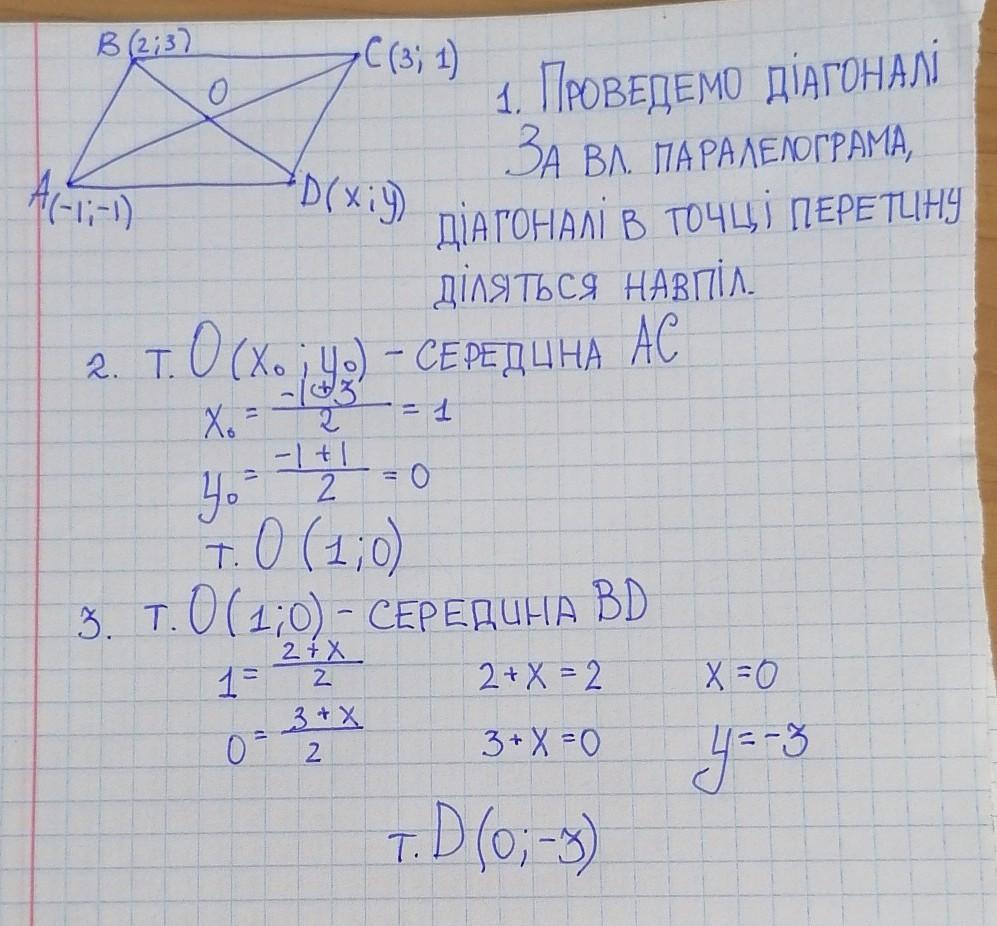 B(2;3)
C(3; 1)
O
A(-1;-1)
D(x;y)
1. ПРОВЕДЕМО ДІАГОНАЛІ
ЗА ВЛ. ПАРАЛЕЛОГРАМА,
ДІАГОНАЛІ В ТОЧЦІ ПЕРЕТИНУ
ДІЛЯТЬСЯ НАВПІЛ.
2. т. O(x₀; y₀) - СЕРЕДИНА AC
x₀ = (-1+3)/2 = 1
y₀ = (-1+1)/2 = 0
т. O (1;0)
3. т. O(1;0) - СЕРЕДИНА BD
1 = (2+x)/2 2+x=2 x=0
0 = (3+x)/2 3+x=0 y=-3
т. D(0;-3)